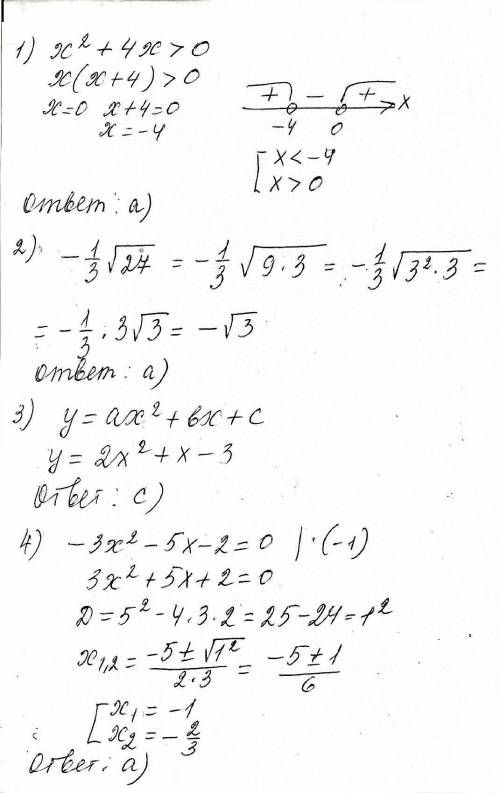 1) x² + 4x > 0
x(x+4) > 0
x=0 x+4=0
x = -4
+ - + x
-4 0
[ x < -4
x > 0
Ответ: а)
2) -1/3 √27 = -1/3 √(9·3) = -1/3 √(3²·3) =
= -1/3 · 3√3 = -√3
Ответ: а)
3) y = ax² + вx + c
y = 2x² + x - 3
Ответ: с)
4) -3x² - 5x - 2 = 0 |·(-1)
3x² + 5x + 2 = 0
D = 5² - 4·3·2 = 25 - 24 = 1²
x₁,₂ = (-5 ± √1²)/(2·3) = (-5 ± 1)/6
[ x₁ = -1
x₂ = -2/3
Ответ: а)